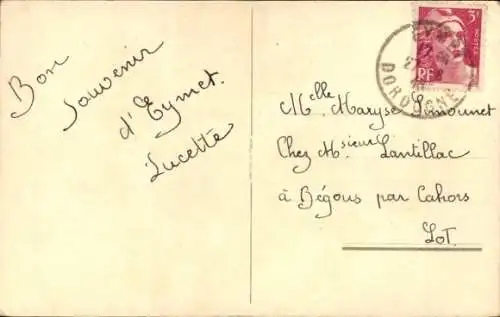 Bon
souvenir
d'Eymet.
Lucette
3F
RF
POSTES
DORDOGNE
Melle Maryse Limounet
Chez Msieur Lantillac
à Bégous par Cahors
Lot.